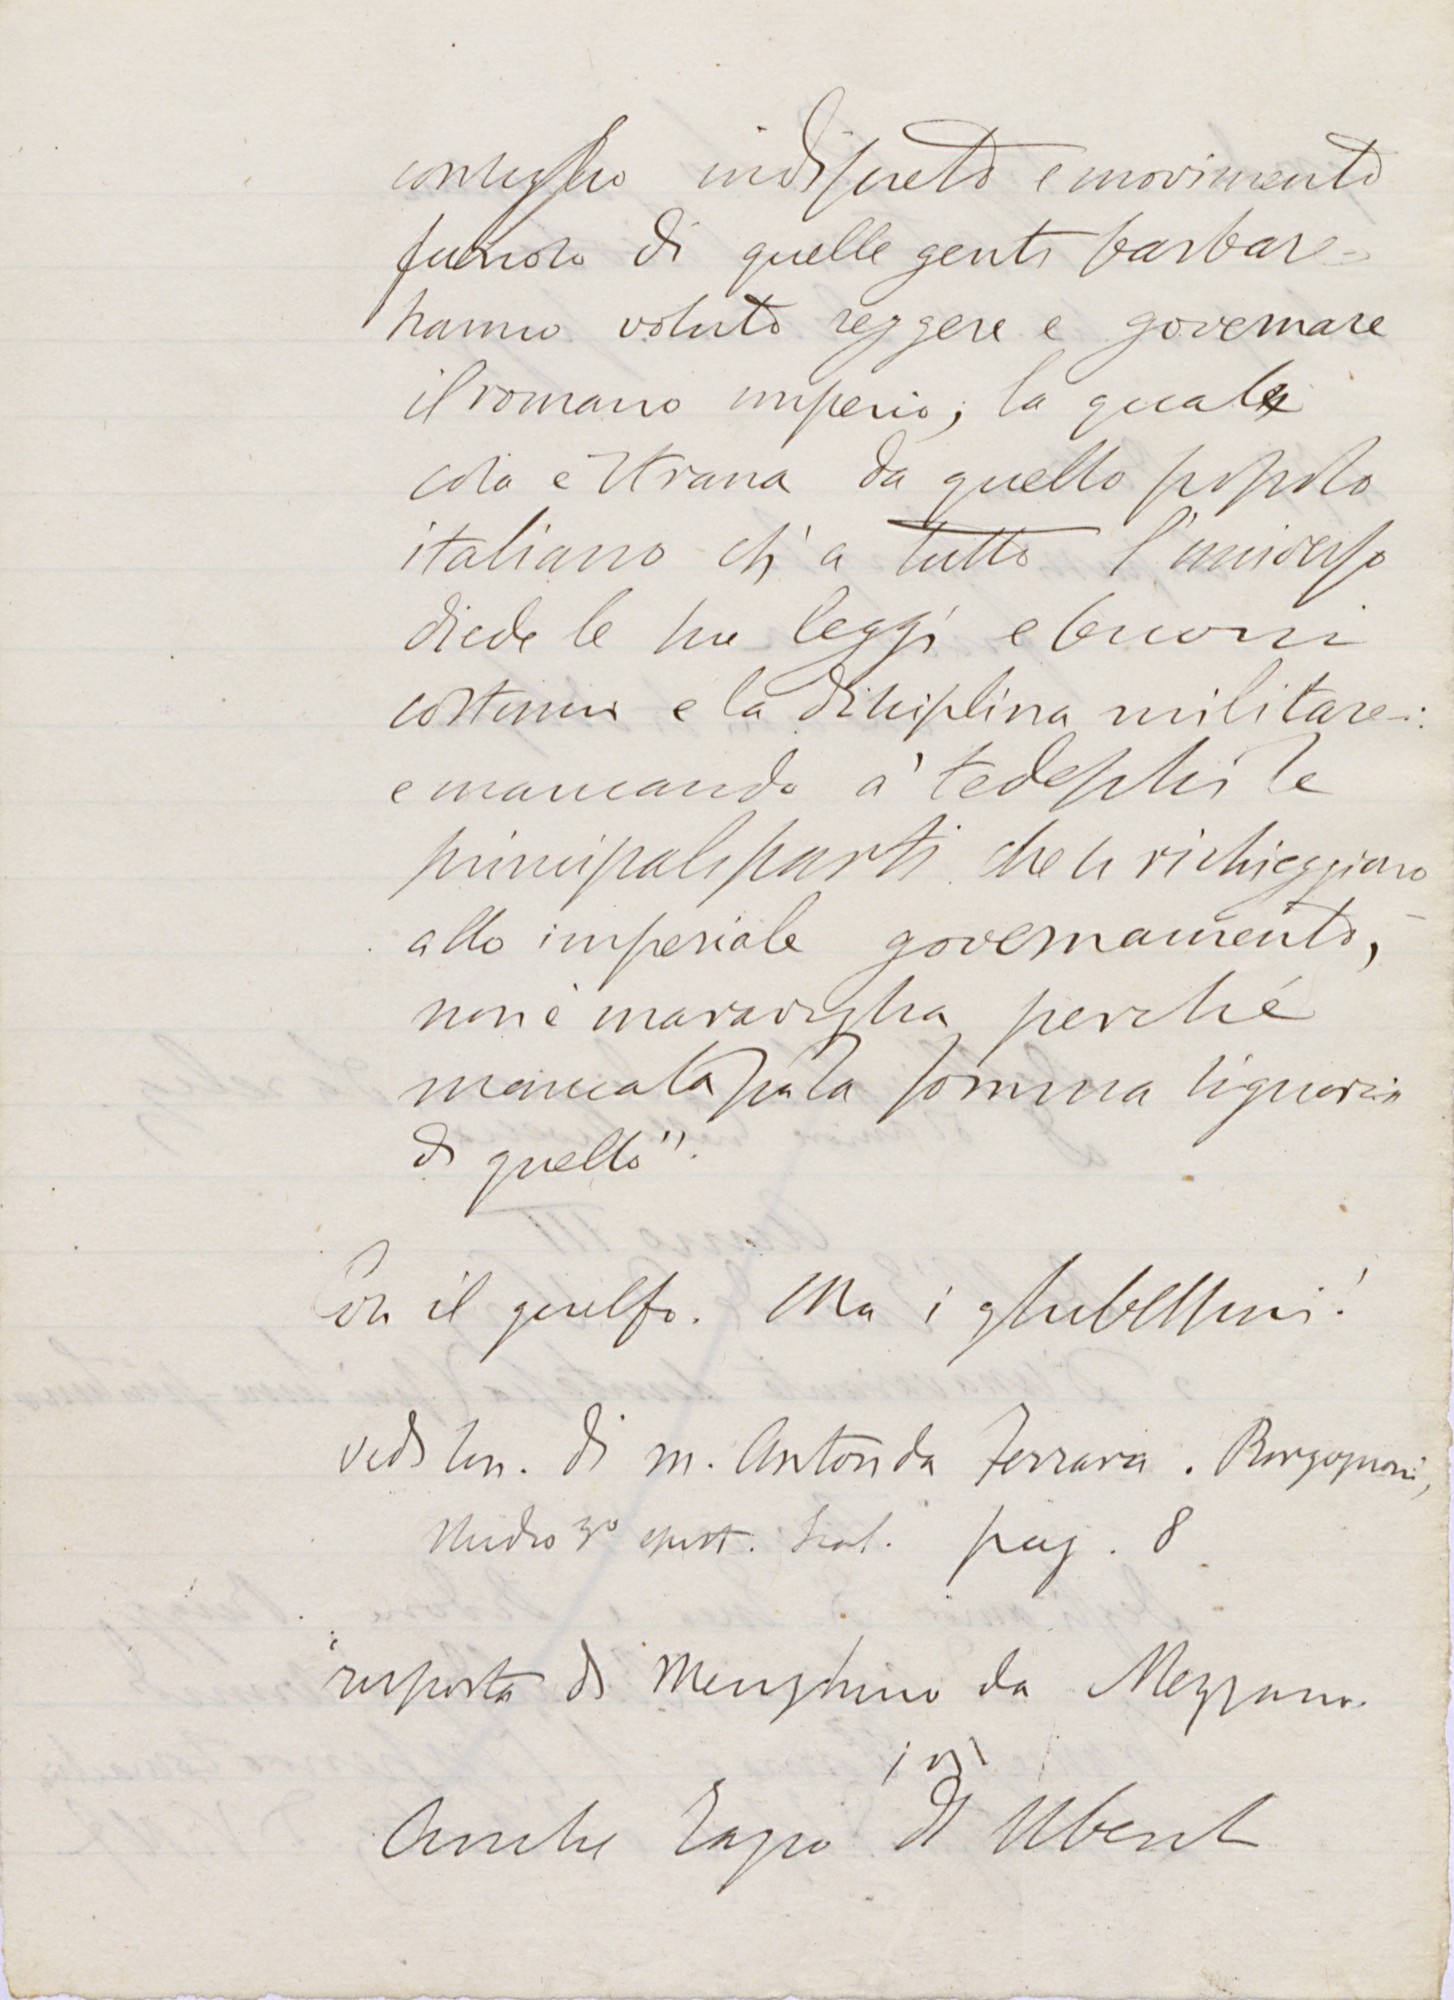 consiglio indiscreto e movimento
furioso di quelle genti barbare
hanno voluto reggere e governare
il romano imperio; la quale
cosa è strana da quello popolo
italiano ch' a tutto l'universo
diede le sue leggi e buoni
costumi e la disciplina militare:
e mancando a' tedeschi le
principali parti che si richieggiono
allo imperiale governamento,
non è maraviglia perché
mancata sia la somma signoria
di quello".
Così il guelfo. Ma i ghibellini!
vedi son. di m. Antonio da Ferrara. Borgognoni,
Studio 3º pag. 8
risposta di Menghino da Mezzano
ivi
Anche Lapo di Uberti